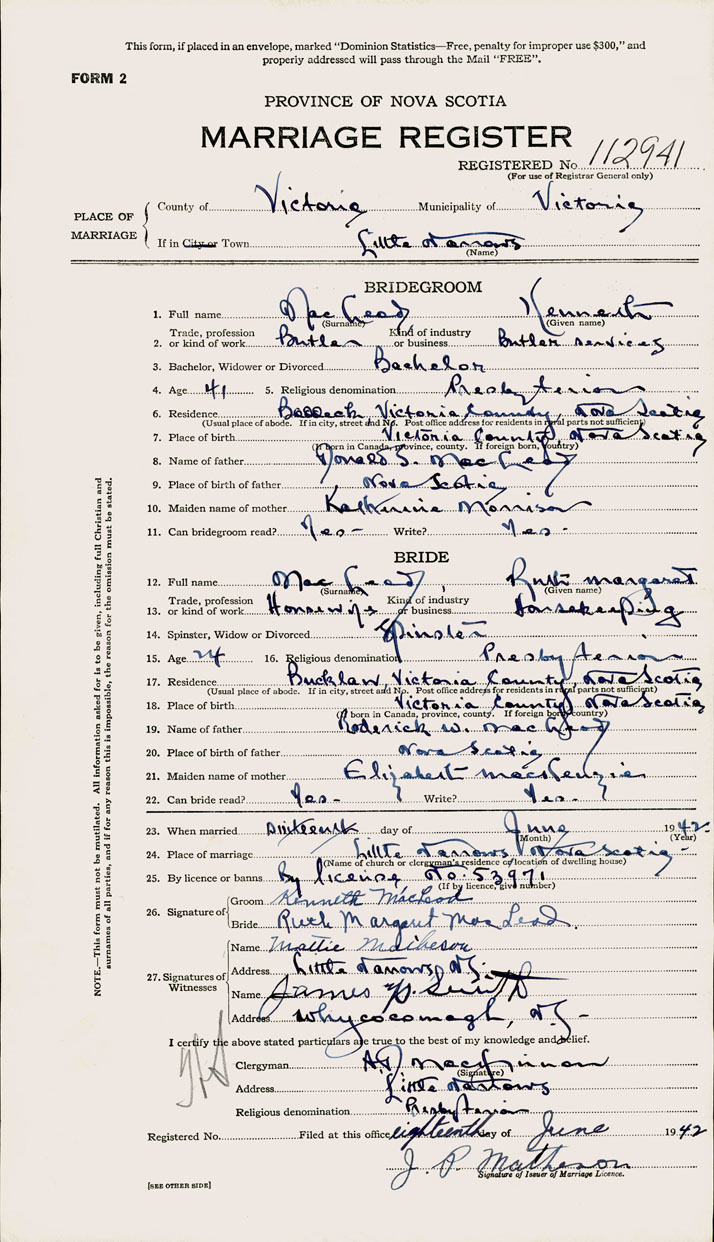 This form, if placed in an envelope, marked “Dominion Statistics—Free, penalty for improper use $300,” and
properly addressed will pass through the Mail “FREE”.
FORM 2
PROVINCE OF NOVA SCOTIA
MARRIAGE REGISTER
REGISTERED No. 112941
(For use of Registrar General only)
PLACE OF MARRIAGE
County of Victoria Municipality of Victoria
If in City or Town Little Narrows
(Name)
BRIDEGROOM
1. Full name MacLeod Kenneth
(Surname) (Given name)
2. Trade, profession or kind of work Butler Kind of industry or business Butler services
3. Bachelor, Widower or Divorced Bachelor
4. Age 41 5. Religious denomination Presbyterian
6. Residence Baddeck, Victoria County, Nova Scotia
(Usual place of abode. If in city, street and No. Post office address for residents in rural parts not sufficient)
7. Place of birth Victoria County, Nova Scotia
(If born in Canada, province, county. If foreign born, country)
8. Name of father Donald S. MacLeod
9. Place of birth of father Nova Scotia
10. Maiden name of mother Katherine Morrison
11. Can bridegroom read? Yes- Write? Yes-
BRIDE
12. Full name MacLeod, Ruth Margaret
(Surname) (Given name)
13. Trade, profession or kind of work Housewife Kind of industry or business Housekeeping
14. Spinster, Widow or Divorced Spinster
15. Age 24 16. Religious denomination Presbyterian
17. Residence Bucklaw, Victoria County, Nova Scotia
(Usual place of abode. If in city, street and No. Post office address for residents in rural parts not sufficient)
18. Place of birth Victoria County, Nova Scotia
(If born in Canada, province, county. If foreign born, country)
19. Name of father Roderick W. MacLeod
20. Place of birth of father Nova Scotia
21. Maiden name of mother Elizabeth MacKenzie
22. Can bride read? Yes- Write? Yes-
23. When married sixteenth day of June 1942-
(Month) (Year)
24. Place of marriage Little Narrows Nova Scotia-
(Name of church or clergyman's residence or location of dwelling house)
25. By licence or banns By license No: 53971
(If by licence, give number)
26. Signature of
Groom Kenneth MacLeod
Bride Ruth Margaret MacLeod.
27. Signatures of Witnesses
Name Mattie Matheson
Address Little Narrows, N.S.
Name James P. Smith
Address Whycocomagh, N.S-
I certify the above stated particulars are true to the best of my knowledge and belief.
Clergyman MacKinnon
(Signature)
Address Little Narrows
Religious denomination Presbyterian
Registered No. Filed at this office eighteenth day of June 1942
J. P. Matheson
Signature of Issuer of Marriage Licence.
[SEE OTHER SIDE]
NOTE.—This form must not be mutilated. All information asked for is to be given, including full Christian and
surnames of all parties, and if for any reason this is impossible, the reason for the omission must be stated.